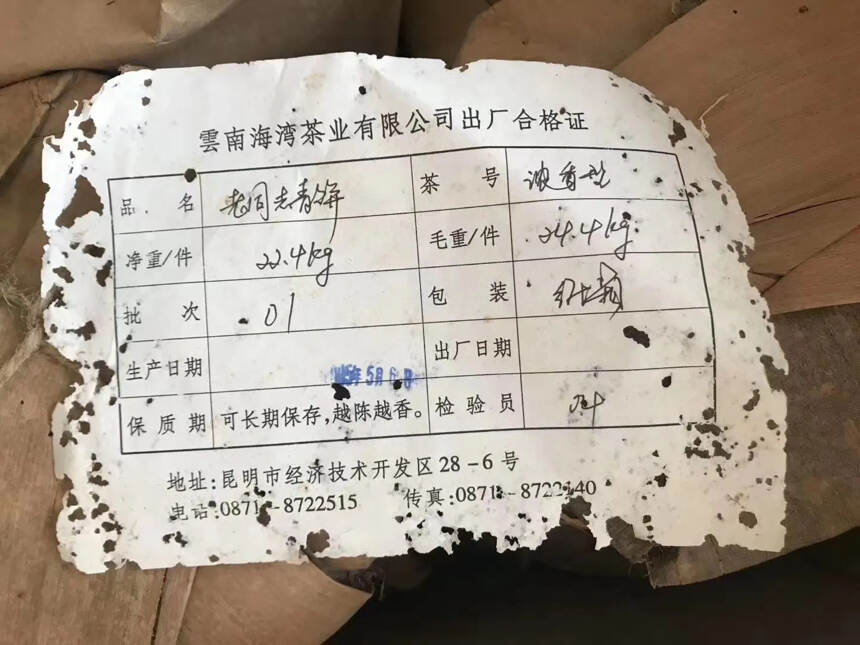 雲南海湾茶业有限公司出厂合格证
品名 老同志青饼 茶号 浓香型
净重/件 22.4kg 毛重/件 24.4kg
批次 01 包装
生产日期 5月6日 出厂日期
保质期 可长期保存,越陈越香。 检验员
地址:昆明市经济技术开发区28-6号
电话:0871-8722515 传真:0871-8722140